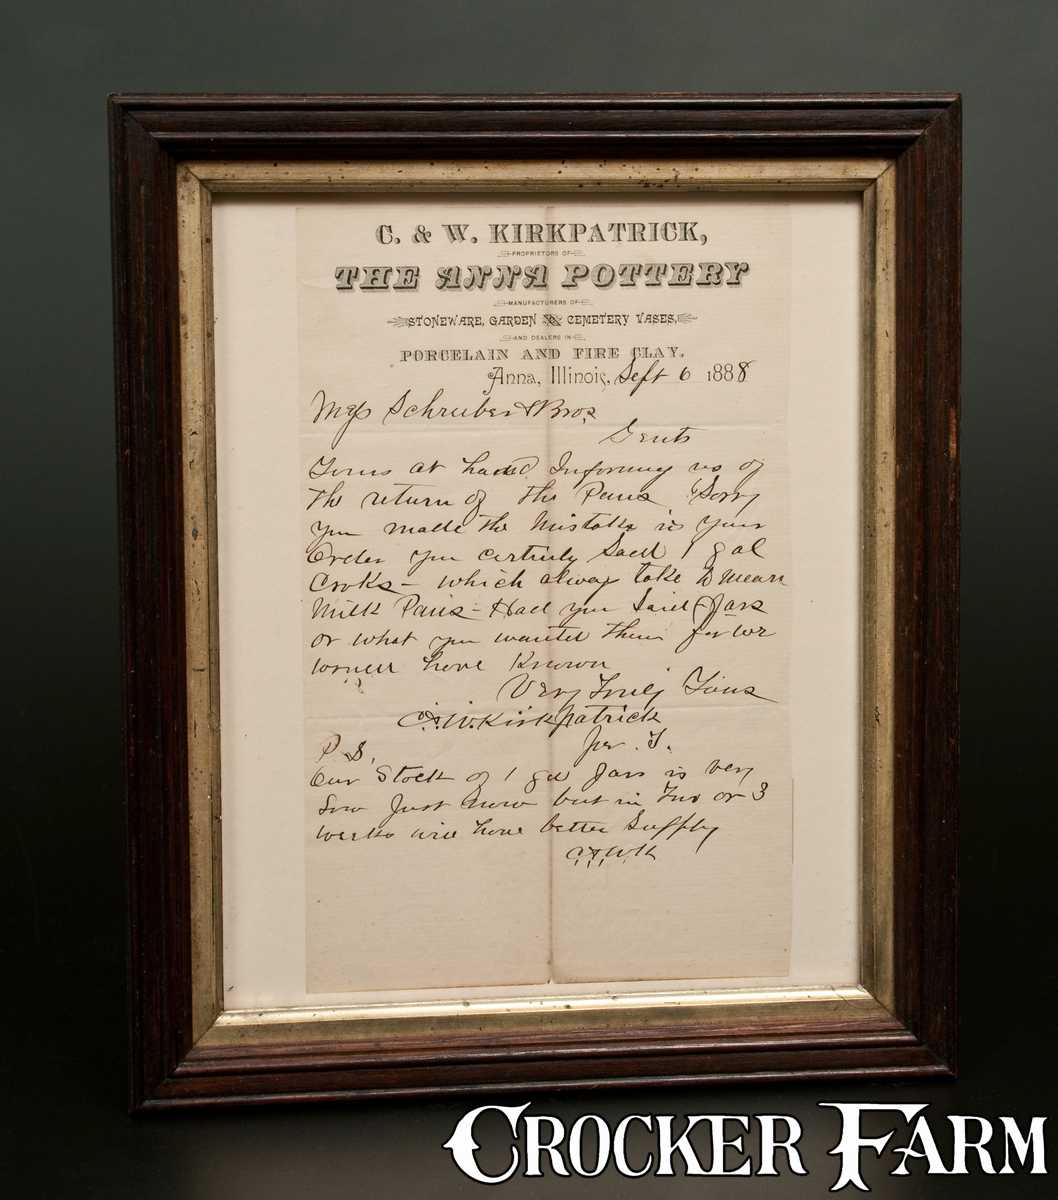 C. & W. KIRKPATRICK,
PROPRIETORS OF
THE ANNA POTTERY
MANUFACTURERS OF
STONEWARE, GARDEN AND CEMETERY VASES,
AND DEALERS IN
PORCELAIN AND FIRE CLAY.
Anna, Illinois, Sept 6 1888
Schreiber & Bros,
Gents
Yours at hand Informing us of
the return of the Pans Sorry
you made the Mistake in your
Order you certinly Said 1 gal
Croks - which alway take to mean
Milk Pans - Had you Said Jars
or what you wanted them for we
have Known
Very Truly Yours
C & W. Kirkpatrick
per. T.
P.S.
Our Stock of 1 gal Jars is very
low Just now but in Two or 3
weeks will have better Supply
C & W K
CROCKER FARM